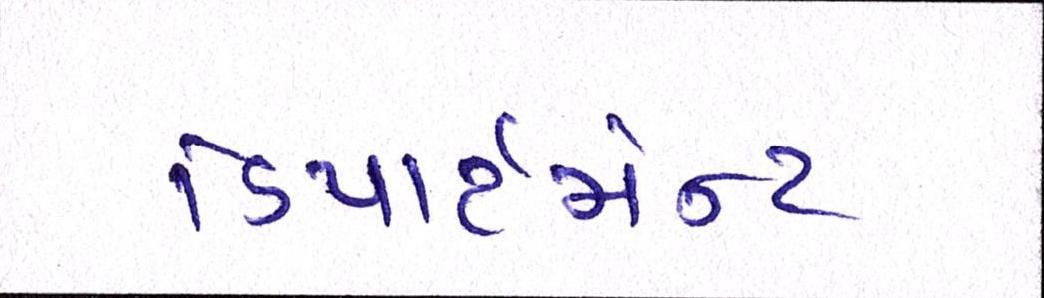 ડિપાર્ટમેન્ટ